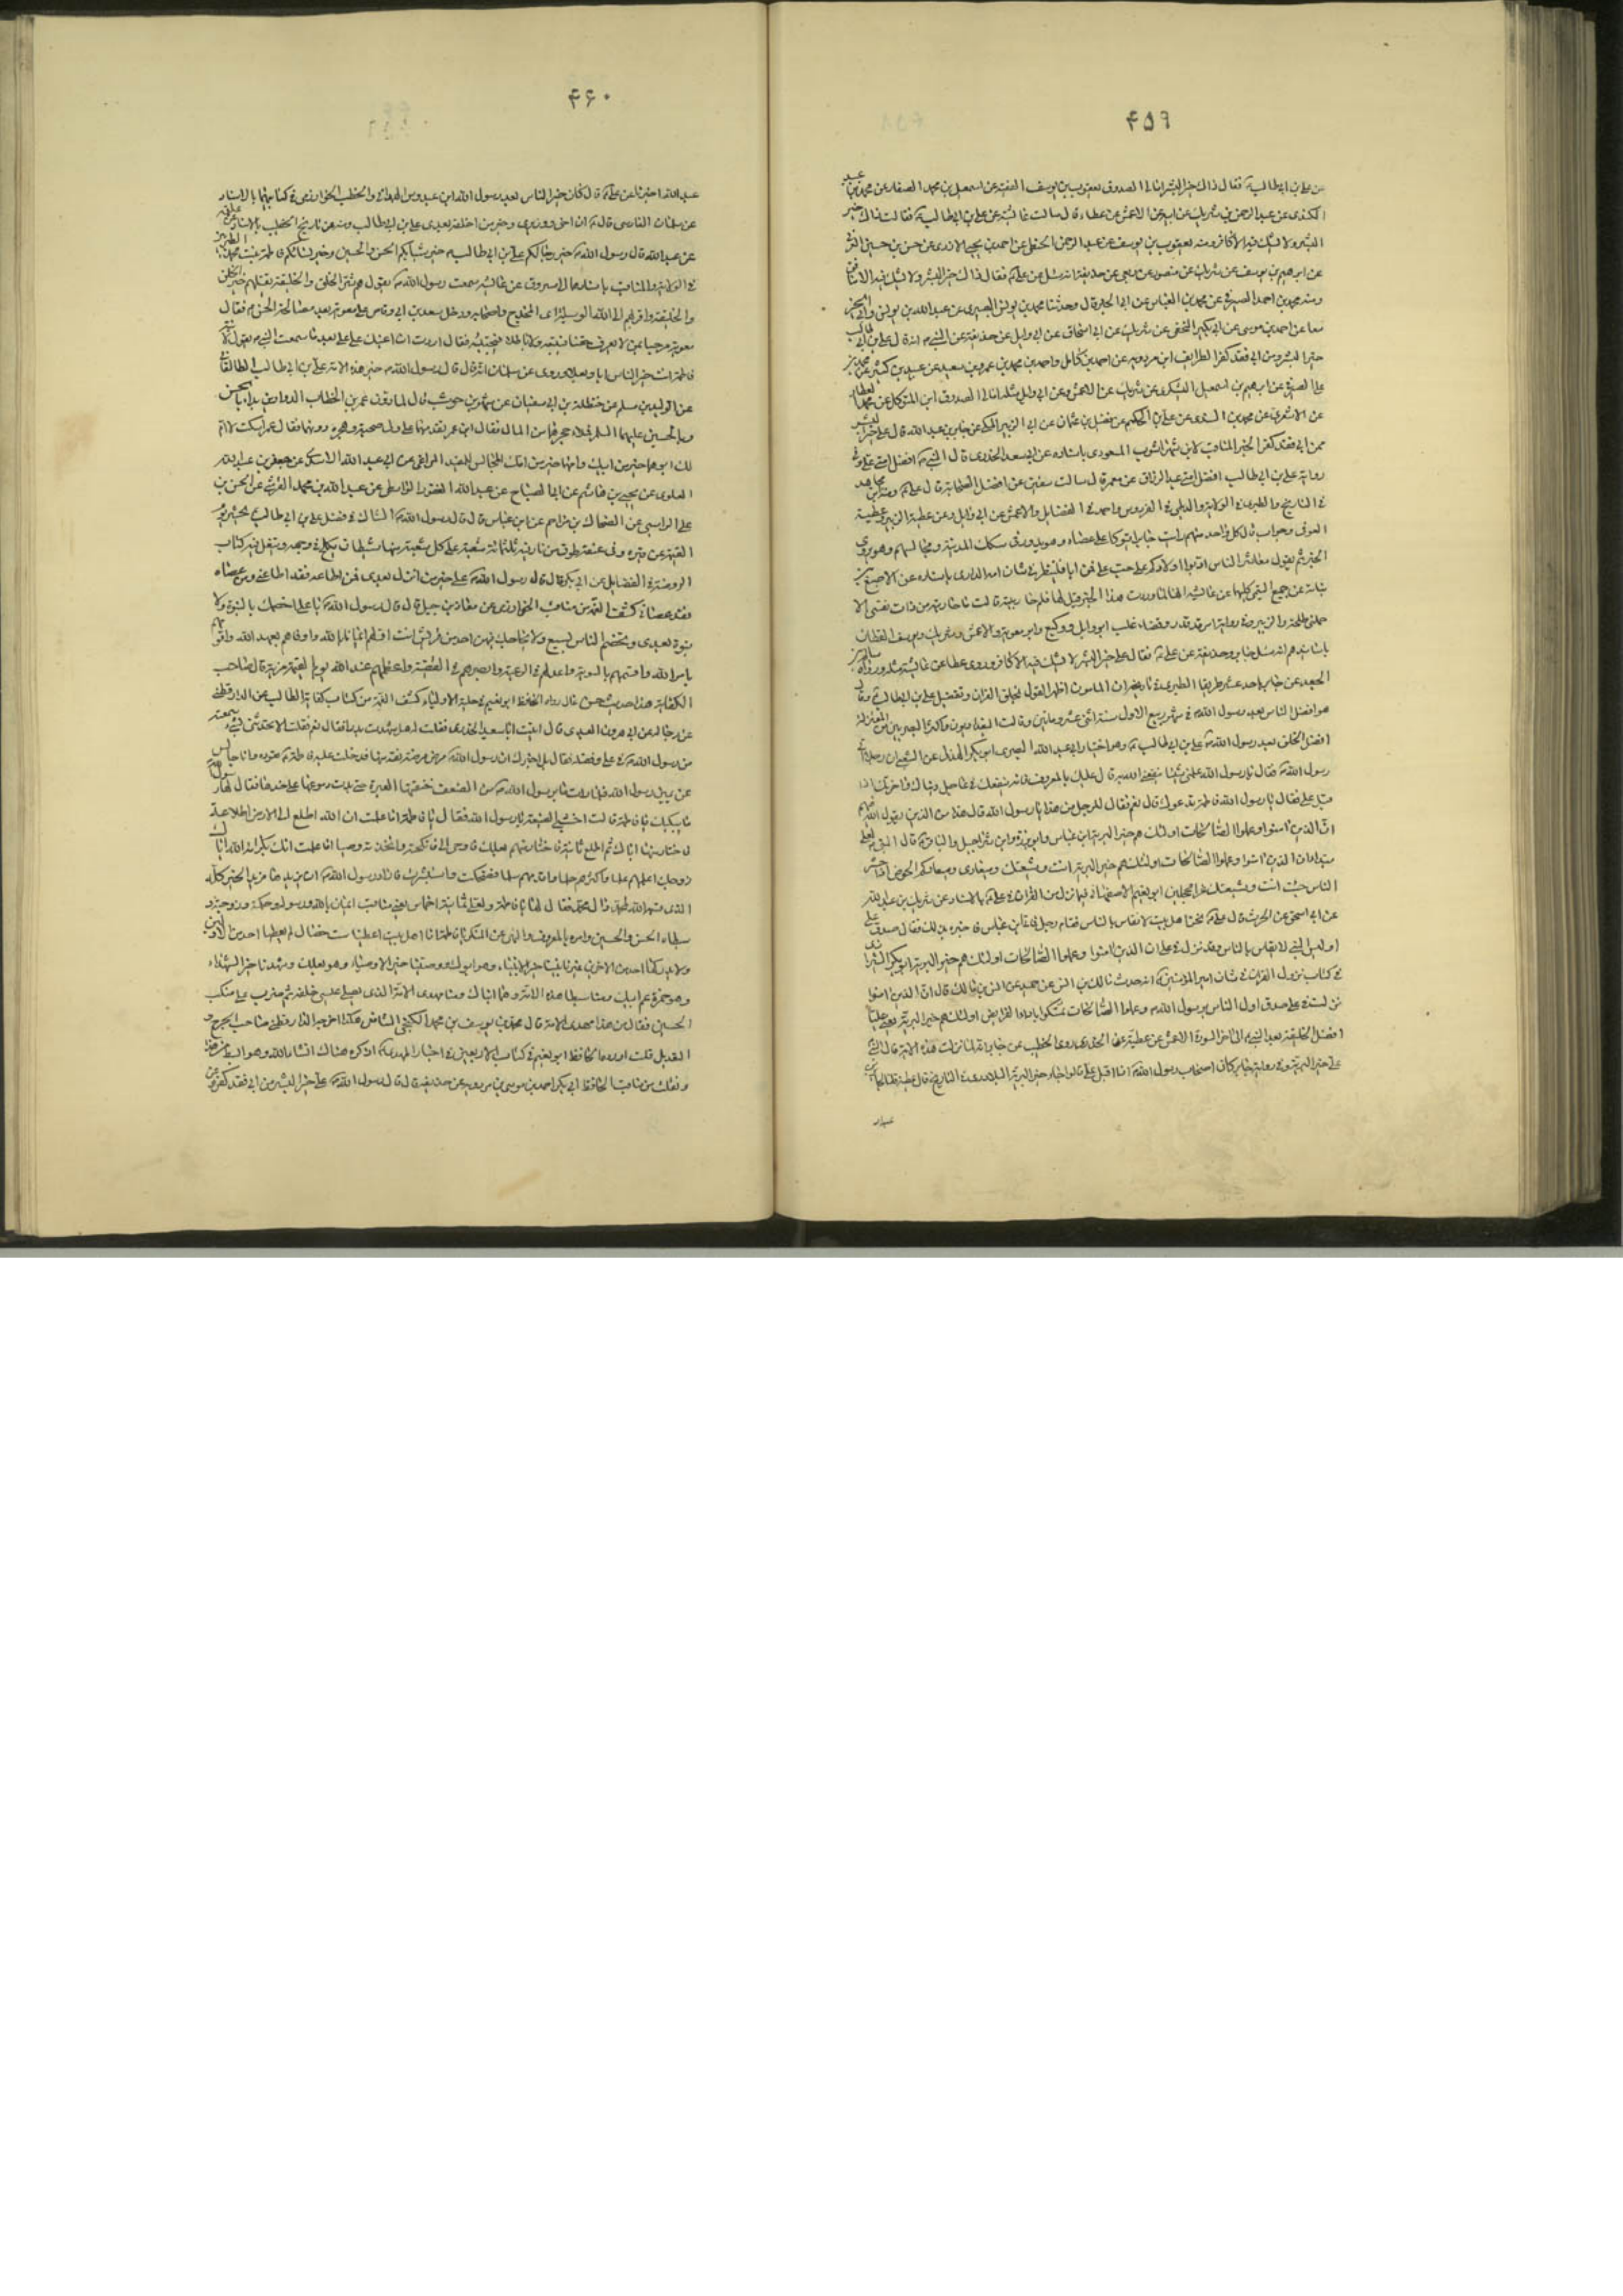 ۴۵۹
عن علي بن ابي طالب فقال ذاك خير البشر امالي الصدوق يعقوب بن يوسف الفقيه عن اسمعيل بن محمد الصفار عن محمد بن عبيد
الكندي عن عبد الرحمن بن شريك عن ابيه عن الاعمش عن عطاء قال سالت عايشة عن علي بن ابي طالب فقالت ذاك خير
البشر ولا يشك فيه الا كافر ومنه يعقوب بن يوسف عن عبد الرحمن عن احمد بن يحيى الازدي عن حسن بن حسين
عن ابرهيم بن يوسف عن شريك عن منصور عن ربعي عن حذيفة انه سئل عن علي فقال ذاك خير البشر ولا يشك فيه الا منافق
ومنه محمد بن احمد الصيرفي عن محمد بن العباس عن ابي الخير قال وحدثنا محمد بن يونس البصري عن عبد الله بن يونس وابي الخير
معا عن احمد بن موسى عن ابي بكير النخعي عن شريك عن ابي اسحاق عن ابي وايل عن حذيفة عن النبي انه قال علي بن ابي طالب
خير البشر ومن ابي فقد كفر الطرايف ابن مردويه عن احمد بن كامل واحمد بن محمد بن عمرو بن سعيد عن عبيد بن كثير عن محمد بن
علي الصيرفي عن ابرهيم بن اسمعيل اليشكري عن شريك عن الاعمش عن ابي وايل مثله امالي الصدوق ابن المتوكل عن محمد العطار
عن الاشعري عن محمد بن السندي عن علي بن الحكم عن فضيل بن عثمان عن ابي الزبير المكي عن جابر بن عبد الله قال علي خير البشر
فمن ابي فقد كفر الخبر المناقب لابن شهراشوب المسعودي باسناده عن ابي سعيد الخدري قال النبي افضل امتي علي وفي
رواية علي بن ابي طالب افضل امتي عبد الرزاق عن معمر قال سالت عن افضل الصحابة قال علي ومنه ابن مجاهد
في التاريخ والطبري في الولاية والديلمي في الفردوس واحمد في الفضايل والاعمش عن ابي وايل وعن عطية
العوفي وجواب قال كل واحد منهم رايت جابرا يتوكا على عصاه وهو يدور في سكك المدينة ومجالسهم وهو يروي
الخبر ثم يقول معاشر الناس ادبوا اولادكم على حب علي فمن ابا فلينظر في شان امه الداري باسناده عن الاصبغ بن
نباتة عن جميع التيمي كليهما عن عايشة انها لما روت هذا الخبر قيل لها فلم حاربتيه قالت ما حاربته من ذات نفسي الا
حملني طلحة والزبير وفي رواية امر قد قدر وقضاء غلب ابو وايل ووكيع وابو معوية والاعمش وشريك ويوسف القطان
باسانيدهم انه سئل جابر وحذيفة عن علي فقال علي خير البشر لا يشك فيه الا كافر وروى عطا عن عايشة مثله ورواه سالم بن
الجعد عن جابر باحد عشر طريقا الطبري في تاريخه ان المامون اظهر القول بخلق القران وتفضيل علي بن ابي طالب وقال
هو افضل الناس بعد رسول الله في شهر ربيع الاول سنة اثني عشر ومايتين وقالت البغداديون واكثر البصريين من المعتزلة
افضل الخلق بعد رسول الله علي بن ابي طالب وهو اختيار ابي عبد الله البصري ابو بكر الهذلي عن الشعبي ان رجلا اتى
رسول الله فقال يا رسول الله علمني شيئا ينفعني الله به قال عليك بالمعروف فانه ينفعك في عاجل دنياك واخرتك اذا
قبل علي فقال يا رسول الله فاطمة تدعوك قال نعم فقال الرجل من هذا يا رسول الله قال هذا من الذين يقول الله فيهم
ان الذين امنوا وعملوا الصالحات اولئك هم خير البرية ابن عباس وابو برزة وابن شراحيل والباقر قال النبي لعلي
مبتدءا ان الذين امنوا وعملوا الصالحات اولئك هم خير البرية انت وشيعتك وميعادي وميعادكم الحوض اذا حشر
الناس جئت انت وشيعتك غرا محجلين ابو نعيم الاصفهاني فيما نزل من القران في علي بالاسناد عن شريك بن عبد الله
عن ابي اسحق عن الحرث قال علي نحن اهل بيت لا نقاس بالناس فقام رجل فاتى ابن عباس فاخبره بذلك فقال صدق علي
اوليس النبي لا يقاس بالناس وقد نزل في علي ان الذين امنوا وعملوا الصالحات اولئك هم خير البرية ابو بكر الشيرازي
في كتاب نزول القران في شان امير المؤمنين انه حدث مالك بن انس عن حميد عن انس بن مالك قال ان الذين امنوا
نزلت في علي صدق اول الناس برسول الله وعملوا الصالحات تمسكوا باداء الفرايض اولئك هم خير البرية يعني عليا
افضل الخليقة بعد النبي الى اخر السورة الاعمش عن عطية عن الخدري وروى الخطيب عن جابر انه لما نزلت هذه الاية قال النبي
علي خير البرية وفي رواية جابر كان اصحاب رسول الله اذا اقبل علي قالوا جاء خير البرية البلاذري في التاريخ قال عطية قلنا لجابر
۴۶۰
عبد الله اخبرنا عن علي قال كان خير الناس بعد رسول الله ابن عبدوس الهمداني والخطيب الخوارزمي في كتابيهما بالاسناد
عن سلمان الفارسي قال ان اخي ووزيري وخير من اخلفه بعدي علي بن ابي طالب ومنه عن تاريخ الخطيب بالاسناد عن علقمة
عن عبد الله قال رسول الله خير رجالكم علي بن ابي طالب وخير شبابكم الحسن والحسين وخير نسائكم فاطمة بنت محمد الطبري
في الولاية والمناقب باسنادهما الى مسروق عن عايشة سمعت رسول الله يقول هم شر الخلق والخليقة يقتلهم خير الخلق
والخليقة واقربهم الى الله الوسيلة اي المخدج واصحابه ودخل سعد بن ابي وقاص على معوية بعد مصالحة الحسن فقال
معوية مرحبا بمن لا يعرف حقا فيتبعه ولا باطلا فيجتنبه فقال اردت ان اعينك على علي بعد ما سمعت النبي يقول لابنته
فاطمة انت خير الناس ابا وبعلا وروى عن سلمان انه قال قال رسول الله خير هذه الامة علي بن ابي طالب الطالقاني
عن الوليد بن مسلم عن حنظلة بن ابي سفيان عن شهر بن حوشب قال لما دون عمر بن الخطاب الدواوين بدا بالحسن
وبالحسين عليهما السلم فملا حجرهما من المال فقال ابن عمر تقدمهما علي ولي صحبة وهجرة دونهما فقال عمر اسكت لا ام
لك ابوهما خير من ابيك وامهما خير من امك المجالس للمفيد المراغي عن ابي عبد الله الاسدي عن جعفر بن عبد الله
العلوي عن يحيى بن هاشم عن ابي الصباح عن عبد الله الغفور الواسطي عن عبد الله بن محمد القرشي عن الحسن بن
علي الراسبي عن الضحاك بن مزاحم عن ابن عباس قال قال رسول الله الشاك في فضل علي بن ابي طالب يحشر يوم
القيمة من قبره وفي عنقه طوق من نار فيه ثلثمائة شعبة على كل شعبة منها شيطان يكلح في وجهه ويتفل فيه كتاب
الروضة الفضايل عن ابي بكر قال قال رسول الله علي خير من اترك بعدي فمن اطاعه فقد اطاعني ومن عصاه
فقد عصاني كشف الغمة من مناقب الخوارزمي عن معاذ بن جبل قال قال رسول الله يا علي اخصمك بالنبوة ولا
نبوة بعدي وتخصم الناس بسبع ولا يحاجك فيهن احد من قريش انت اولهم ايمانا بالله واوفاهم بعهد الله واقومهم
بامر الله واقسمهم بالسوية واعدلهم في الرعية وابصرهم في القضية واعظمهم عند الله يوم القيمة مزية قال صاحب
الكفاية هذا حديث حسن عال رواه الحافظ ابو نعيم في حلية الاولياء كشف الغمة من كتاب كفاية الطالب عن الدارقطني
عن رجاله عن ابي هرون العبدي قال اتيت ابا سعيد الخدري فقلت له هل شهدت بدرا فقال نعم فقلت الا تحدثني بشيء سمعته
من رسول الله في علي وفضله فقال بلى اخبرك ان رسول الله مرض مرضة نقه منها فدخلت عليه فاطمة تعوده وانا جالس
عن يمين رسول الله فلما رات ما برسول الله من الضعف خنقتها العبرة حتى بدت دموعها على خدها فقال لها رسول الله
ما يبكيك يا فاطمة قالت اخشى الضيعة يا رسول الله فقال يا فاطمة اما علمت ان الله اطلع الى الارض اطلاعة
فاختار منها اباك ثم اطلع ثانية فاختار منهم بعلك فاوحى الي فانكحته واتخذته وصيا اما علمت انك بكرامة الله اياك
زوجك اعلمهم علما واكثرهم حلما واقدمهم سلما فضحكت واستبشرت فاراد رسول الله ان يزيدها مزيد الخير كله
الذي قسمه الله لمحمد وال محمد فقال لها يا فاطمة ولعلي ثمانية اضراس يعني مناقب ايمان بالله ورسوله وحكمة وزوجته و
سبطاه الحسن والحسين وامره بالمعروف والنهي عن المنكر يا فاطمة انا اهل بيت اعطينا ست خصال لم يعطها احد من الاولين
ولا يدركها احد من الاخرين غيرنا نبينا خير الانبياء وهو ابوك ووصينا خير الاوصياء وهو بعلك وشهيدنا خير الشهداء
وهو حمزة عم ابيك ومنا سبطا هذه الامة وهما ابناك ومنا مهدي الامة الذي يصلي عيسى خلفه ثم ضرب على منكب
الحسين فقال من هذا مهدي الامة قال محمد بن يوسف بن محمد الكنجي الشافعي هكذا اخرجه الدارقطني صاحب الجرح و
التعديل قلت اورده الحافظ ابو نعيم في كتاب الاربعين في اخبار المهدي اذكره هناك انشاء الله وهو ابسط من هذا
ونقلت من مناقب الحافظ ابي بكر احمد بن موسى بن مردويه عن حذيفة قال قال رسول الله علي خير البشر من ابي فقد كفر